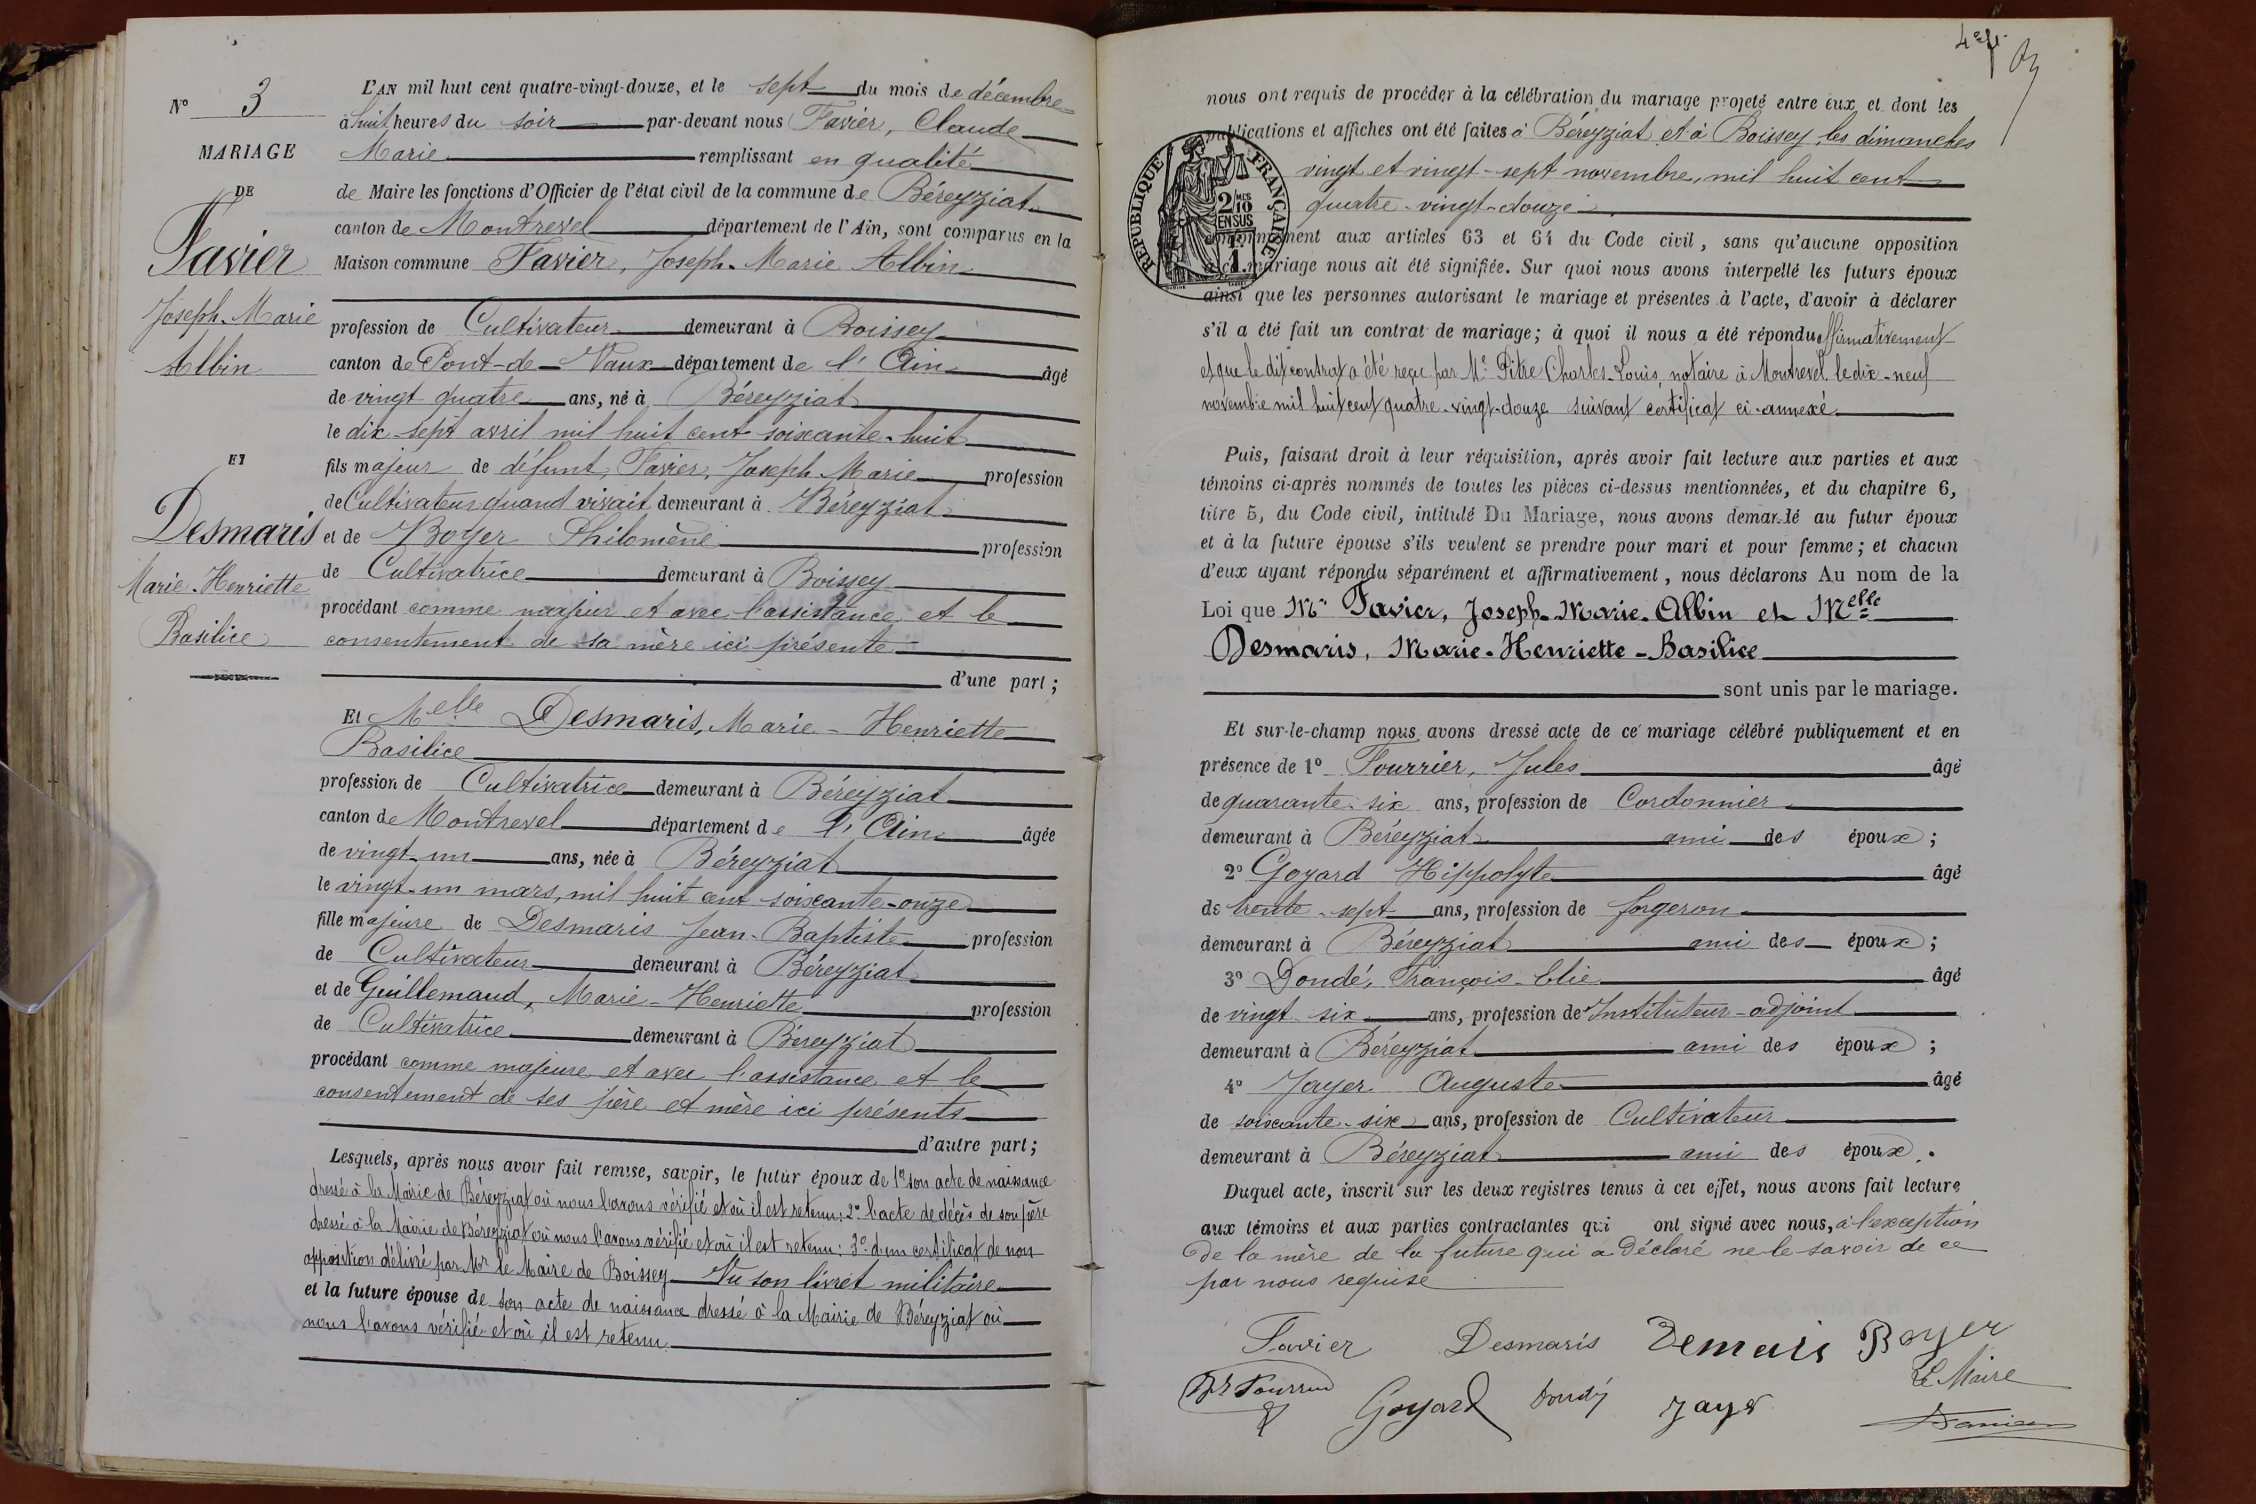 N° 3
MARIAGE
DE
Favier
Joseph-Marie
Albin
ET
Desmaris
Marie-Henriette
Basilice
L'AN mil huit cent quatre-vingt-douze, et le sept du mois de décembre
à huit heures du soir par-devant nous Favier, Claude
Marie remplissant en qualité
de Maire les fonctions d'Officier de l'état civil de la commune de Béreyziat
canton de Montrevel département de l'Ain, sont comparus en la
Maison commune Favier, Joseph-Marie Albin
profession de Cultivateur demeurant à Boissey
canton de Pont-de-Vaux département de l'Ain âgé
de vingt quatre ans, né à Béreyziat
le dix-sept avril mil huit cent soixante-huit
fils majeur de défunt Favier, Joseph Marie profession
de Cultivateur quand vivait demeurant à Béreyziat
et de Boyer Philomène profession
de Cultivatrice demeurant à Boissey
procédant comme majeur et avec l'assistance et le
consentement de sa mère ici présente
d'une part ;
Et Melle Desmaris, Marie-Henriette
Basilice
profession de Cultivatrice demeurant à Béreyziat
canton de Montrevel département de l'Ain âgée
de vingt-un ans, née à Béreyziat
le vingt-un mars, mil huit cent soixante-onze
fille majeure de Desmaris Jean-Baptiste profession
de Cultivateur demeurant à Béreyziat
et de Guillemaud, Marie-Henriette profession
de Cultivatrice demeurant à Béreyziat
procédant comme majeure et avec l'assistance et le
consentement de ses père et mère ici présents
d'autre part ;
Lesquels, après nous avoir fait remise, savoir, le futur époux de 1° son acte de naissance
dressé à la Mairie de Béreyziat où nous l'avons vérifié et où il est retenu; 2° l'acte de décès de son père
dressé à la Mairie de Béreyziat où nous l'avons vérifié et où il est retenu: 3° d'un certificat de non
opposition délivré par Mr le Maire de Boissey Vu son livret militaire
et la future épouse de son acte de naissance dressé à la Mairie de Béreyziat où
nous l'avons vérifié et où il est retenu.
nous ont requis de procéder à la célébration du mariage projeté entre eux et dont les
publications et affiches ont été faites à Béreyziat et à Boissey, les dimanches
vingt et vingt-sept novembre, mil huit cent
quatre-vingt-douze
RÉPUBLIQUE FRANÇAISE
2/10
EN SUS
conformément aux articles 63 et 64 du Code civil, sans qu'aucune opposition
à ce mariage nous ait été signifiée. Sur quoi nous avons interpellé les futurs époux
ainsi que les personnes autorisant le mariage et présentes à l'acte, d'avoir à déclarer
s'il a été fait un contrat de mariage; à quoi il nous a été répondu affirmativement
et que le dit contrat a été reçu par Me Pitre Charles-Louis, notaire à Montrevel, le dix-neuf
novembre mil huit cent quatre-vingt-douze suivant certificat ci-annexé.
Puis, faisant droit à leur réquisition, après avoir fait lecture aux parties et aux
témoins ci-après nommés de toutes les pièces ci-dessus mentionnées, et du chapitre 6,
titre 5, du Code civil, intitulé Du Mariage, nous avons demandé au futur époux
et à la future épouse s'ils veulent se prendre pour mari et pour femme; et chacun
d'eux ayant répondu séparément et affirmativement, nous déclarons Au nom de la
Loi que Mr Favier, Joseph-Marie-Albin et Melle
Desmaris, Marie-Henriette-Basilice
sont unis par le mariage.
Et sur-le-champ nous avons dressé acte de ce mariage célébré publiquement et en
présence de 1° Fourrier, Jules âgé
de quarante-six ans, profession de Cordonnier
demeurant à Béreyziat ami des époux ;
2° Goyard Hippolyte âgé
de trente-sept ans, profession de forgeron
demeurant à Béreyziat ami des époux ;
3° Dondé, François-Elie âgé
de vingt six ans, profession de Instituteur-adjoint
demeurant à Béreyziat ami des époux ;
4° Jayer Auguste âgé
de soixante-six ans, profession de Cultivateur
demeurant à Béreyziat ami des époux.
Duquel acte, inscrit sur les deux registres tenus à cet effet, nous avons fait lecture
aux témoins et aux parties contractantes qui ont signé avec nous, à l'exception
de la mère de la future qui a déclaré ne le savoir de ce
par nous requise
Favier Desmaris Demaris Boyer
Le Maire
Goyard Dondé Jayer
Favier